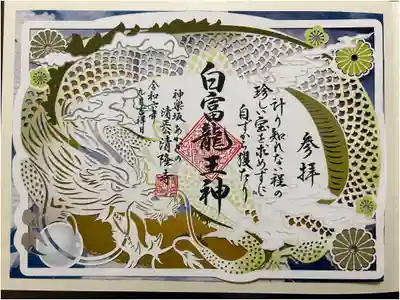 参拝
計り知れない程の
珍しい宝を求めずに
自ずから獲なり
白富龍王神
神楽坂 あかりの
清隆寺
令和六年